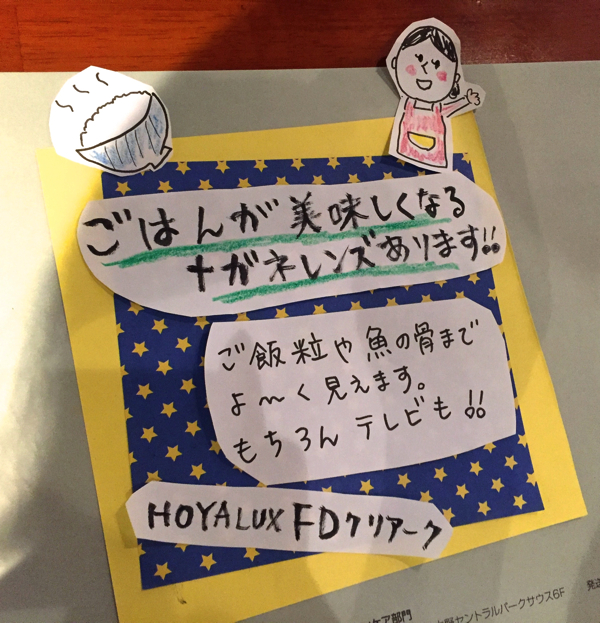 ごはんが美味しくなる
メガネレンズあります!!
ご飯粒や魚の骨まで
よ〜く見えます。
もちろんテレビも!!
HOYALUX FDクリアーク
ケア部門
セントラルパークサウス6F
発送